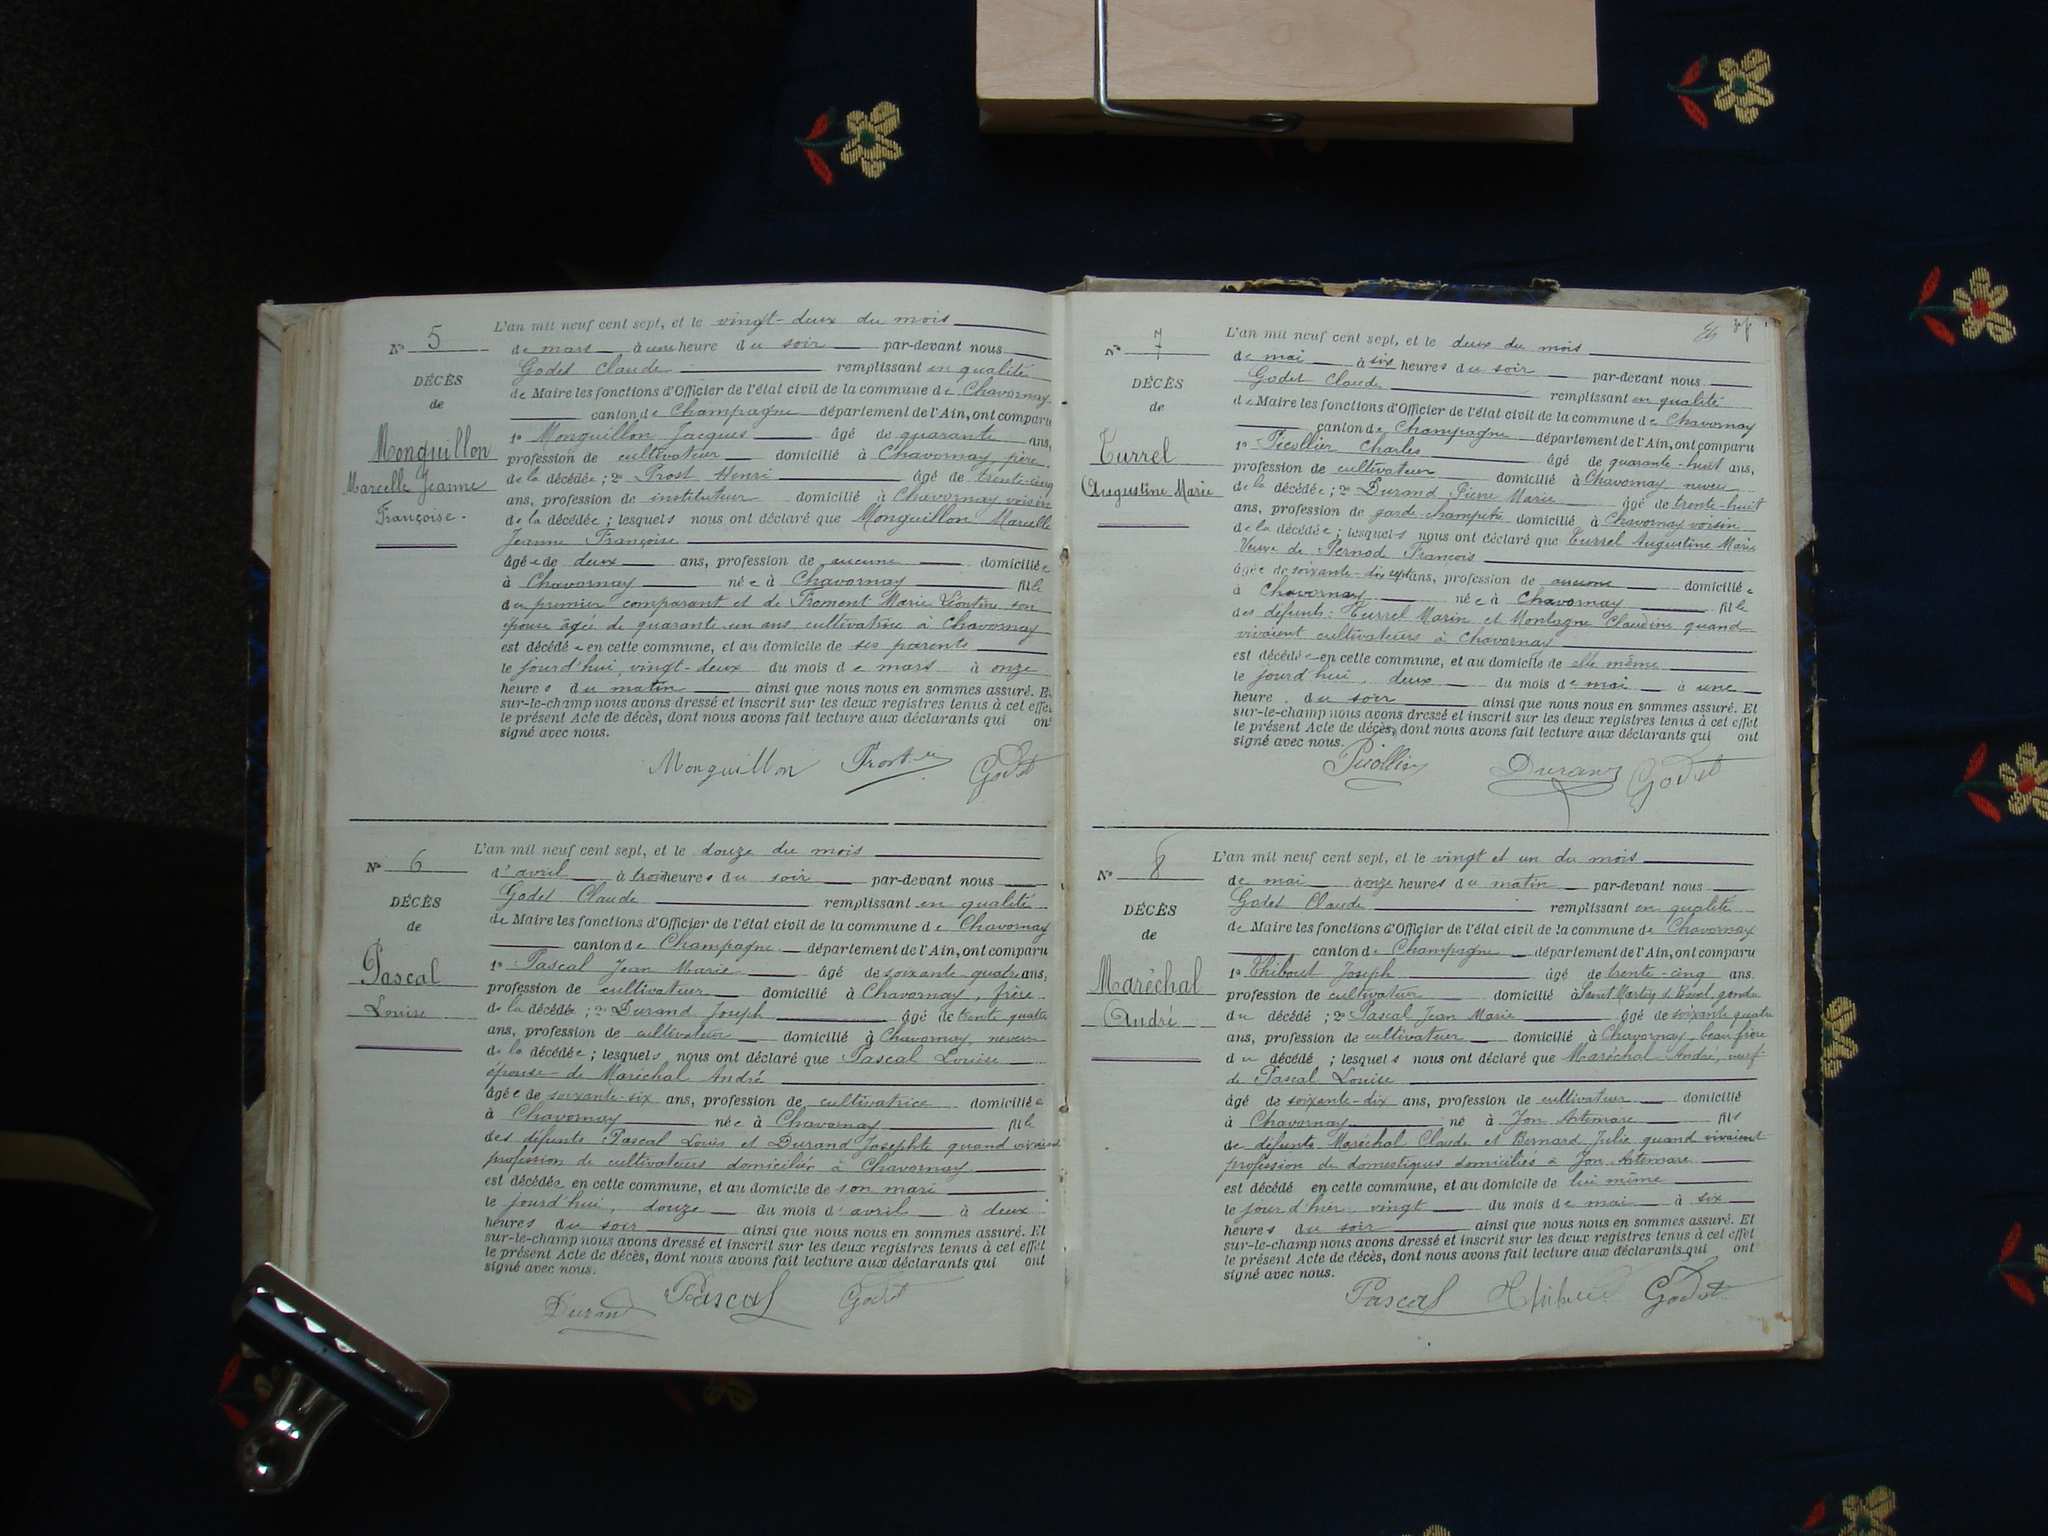 N° 5
DÉCÈS
de
Monguillon
Marcelle Jeanne
Françoise.
L'an mil neuf cent sept, et le vingt-deux du mois
de mars à une heure du soir par-devant nous
Godet Claude remplissant en qualité
de Maire les fonctions d'Officier de l'état civil de la commune de Chavornay
canton de Champagne département de l'Ain, ont comparu
1° Monguillon Jacques âgé de quarante ans,
profession de cultivateur domicilié à Chavornay, père
de la décédée ; 2° Prost Henri âgé de trente-cinq
ans, profession de instituteur domicilié à Chavornay voisin
de la décédée ; lesquels nous ont déclaré que Monguillon Marcelle
Jeanne Françoise
âgée de deux ans, profession de aucune domiciliée
à Chavornay née à Chavornay fille
du premier comparant et de Froment Marie Léontine son
épouse âgée de quarante un ans, cultivatrice à Chavornay
est décédée en cette commune, et au domicile de ses parents
le jourd'hui, vingt-deux du mois de mars à onze
heures du matin ainsi que nous nous en sommes assuré. Et
sur-le-champ nous avons dressé et inscrit sur les deux registres tenus à cet effet
le présent Acte de décès, dont nous avons fait lecture aux déclarants qui ont
signé avec nous.
Monguillon Prost Godet
N° 6
DÉCÈS
de
Pascal
Louise
L'an mil neuf cent sept, et le douze du mois
d'avril à trois heures du soir par-devant nous
Godet Claude remplissant en qualité
de Maire les fonctions d'Officier de l'état civil de la commune de Chavornay
canton de Champagne département de l'Ain, ont comparu
1° Pascal Jean Marie âgé de soixante quatre ans,
profession de cultivateur domicilié à Chavornay, frère
de la décédée ; 2° Durand Joseph âgé de trente quatre
ans, profession de cultivateur domicilié à Chavornay, neveu
de la décédée ; lesquels nous ont déclaré que Pascal Louise
épouse de Maréchal André
âgée de soixante-six ans, profession de cultivatrice domiciliée
à Chavornay née à Chavornay fille
des défunts Pascal Louis et Durand Josephte quand vivaient
profession de cultivateurs domiciliés à Chavornay
est décédée en cette commune, et au domicile de son mari
le jourd'hui, douze du mois d'avril à deux
heures du soir ainsi que nous nous en sommes assuré. Et
sur-le-champ nous avons dressé et inscrit sur les deux registres tenus à cet effet
le présent Acte de décès, dont nous avons fait lecture aux déclarants qui ont
signé avec nous.
Durand Pascal Godet
N° 7
DÉCÈS
de
Turrel
Augustine Marie
L'an mil neuf cent sept, et le deux du mois
de mai à six heures du soir par-devant nous
Godet Claude remplissant en qualité
de Maire les fonctions d'Officier de l'état civil de la commune de Chavornay
canton de Champagne département de l'Ain, ont comparu
1° Picollier Charles âgé de quarante-huit ans,
profession de cultivateur domicilié à Chavornay neveu
de la décédée ; 2° Durand Pierre Marie âgé de trente-huit
ans, profession de garde champêtre domicilié à Chavornay voisin
de la décédée ; lesquels nous ont déclaré que Turrel Augustine Marie
Veuve de Pernod François
âgée de soixante-dix sept ans, profession de aucune domiciliée
à Chavornay née à Chavornay fille
des défunts : Turrel Marin et Montagne Claudine quand
vivaient cultivateurs à Chavornay
est décédée en cette commune, et au domicile de elle même
le jourd'hui, deux du mois de mai à une
heure du soir ainsi que nous nous en sommes assuré. Et
sur-le-champ nous avons dressé et inscrit sur les deux registres tenus à cet effet
le présent Acte de décès, dont nous avons fait lecture aux déclarants qui ont
signé avec nous.
Picollier Durand Godet
N° 8
DÉCÈS
de
Maréchal
André
L'an mil neuf cent sept, et le vingt et un du mois
de mai à onze heures du matin par-devant nous
Godet Claude remplissant en qualité
de Maire les fonctions d'Officier de l'état civil de la commune de Chavornay
canton de Champagne département de l'Ain, ont comparu
1° Thibout Joseph âgé de trente-cinq ans
profession de cultivateur domicilié à Saint Martin d Bavel, gendre
du décédé ; 2° Pascal Jean Marie âgé de soixante quatre
ans, profession de cultivateur domicilié à Chavornay, beau frère
du décédé ; lesquels nous ont déclaré que Maréchal André, veuf
de Pascal Louise
âgé de soixante-dix ans, profession de cultivateur domicilié
à Chavornay né à Yon Artemare fils
de défunts Maréchal Claude et Bernard Julie quand vivaient
profession de domestiques domiciliés à Yon Artemare
est décédé en cette commune, et au domicile de lui même
le jour d'hier, vingt du mois de mai à six
heures du soir ainsi que nous nous en sommes assuré. Et
sur-le-champ nous avons dressé et inscrit sur les deux registres tenus à cet effet
le présent Acte de décès, dont nous avons fait lecture aux déclarants qui ont
signé avec nous.
Pascal Godet